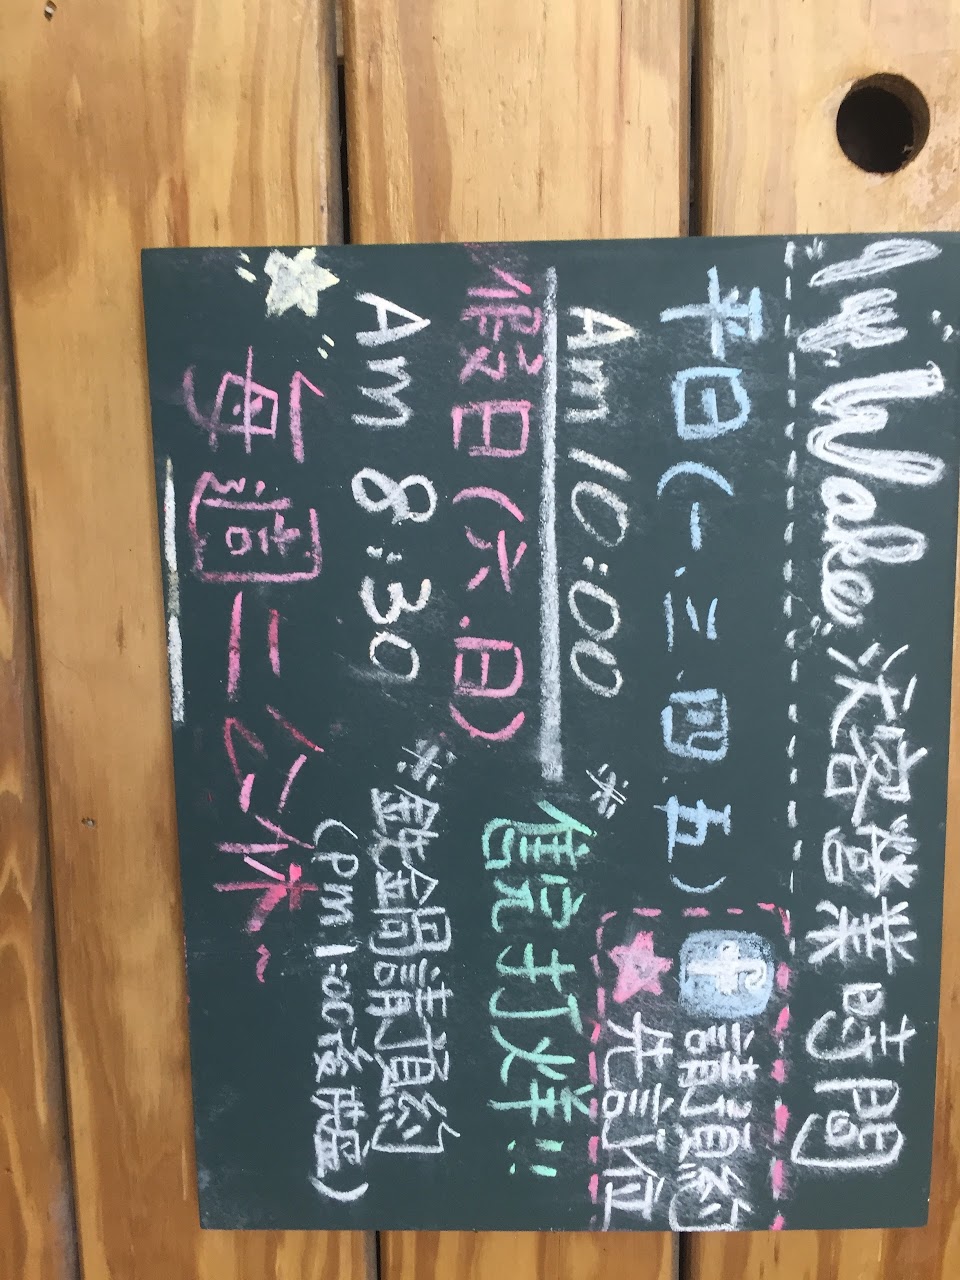 My. Wake. 沃客營業時間
平日(一.三.四.五)
f 請預約
先訂位
Am 10:00
※售完打烊!!
假日(六.日)
Am 8:30
※鍋請預約
(PM 1:00後供應)
每週二公休~